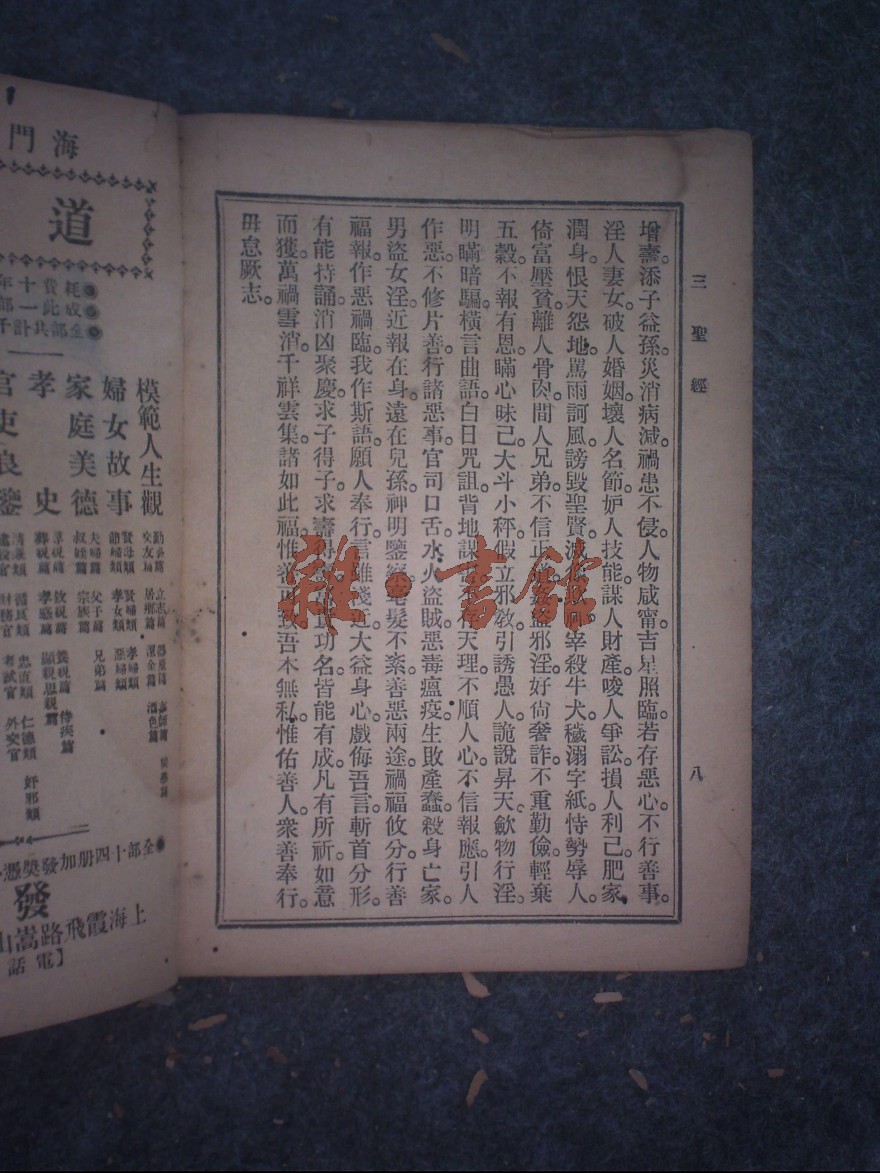 三聖經
八
增壽。添子益孫。災消病減。禍患不侵。人物咸甯。吉星照臨。若存惡心。不行善事。
淫人妻女。破人婚姻。壞人名節。妒人技能。謀人財產。唆人爭訟。損人利己。肥家
潤身。恨天怨地。罵雨訶風。謗毀聖賢。滅像欺神。宰殺牛犬。穢溺字紙。恃勢辱人。
倚富壓貧。離人骨肉。間人兄弟。不信正道。姦盜邪淫。好尙奢詐。不重勤儉。輕棄
五穀。不報有恩。瞞心昧己。大斗小秤。假立邪敎。引誘愚人。詭說昇天。歛物行淫。
明瞞暗騙。橫言曲語。白日咒詛。背地謀害。不存天理。不順人心。不信報應。引人
作惡。不修片善。行諸惡事。官司口舌。水火盜賊。惡毒瘟疫。生敗產蠢。殺身亡家。
男盜女淫。近報在身。遠在兒孫。神明鑒察。毫髮不紊。善惡兩途。禍福攸分。行善
福報。作惡禍臨。我作斯語。願人奉行。言雖淺近。大益身心。戲侮吾言。斬首分形。
有能持誦。消凶聚慶。求子得子。求壽得壽。富貴功名。皆能有成。凡有所祈。如意
而獲。萬禍雪消。千祥雲集。諸如此福。惟善可致。吾本無私。惟佑善人。衆善奉行。
毋怠厥志。
雜·書館
海門
道
●耗資十年
●成此一部
●全部共計千
模範人生觀
婦女故事
賢母類 賢婦類 孝婦類
節婦類 孝女類 惡婦類
家庭美德
夫婦篇 父子篇 兄弟篇
叔姪篇 宗族篇
孝史
官吏良鑒
忠直類 仁德類 奸邪類
財務官 考試官 外交官
●全部十四册加發獎憑
發
上海霞飛路嵩山
【電話